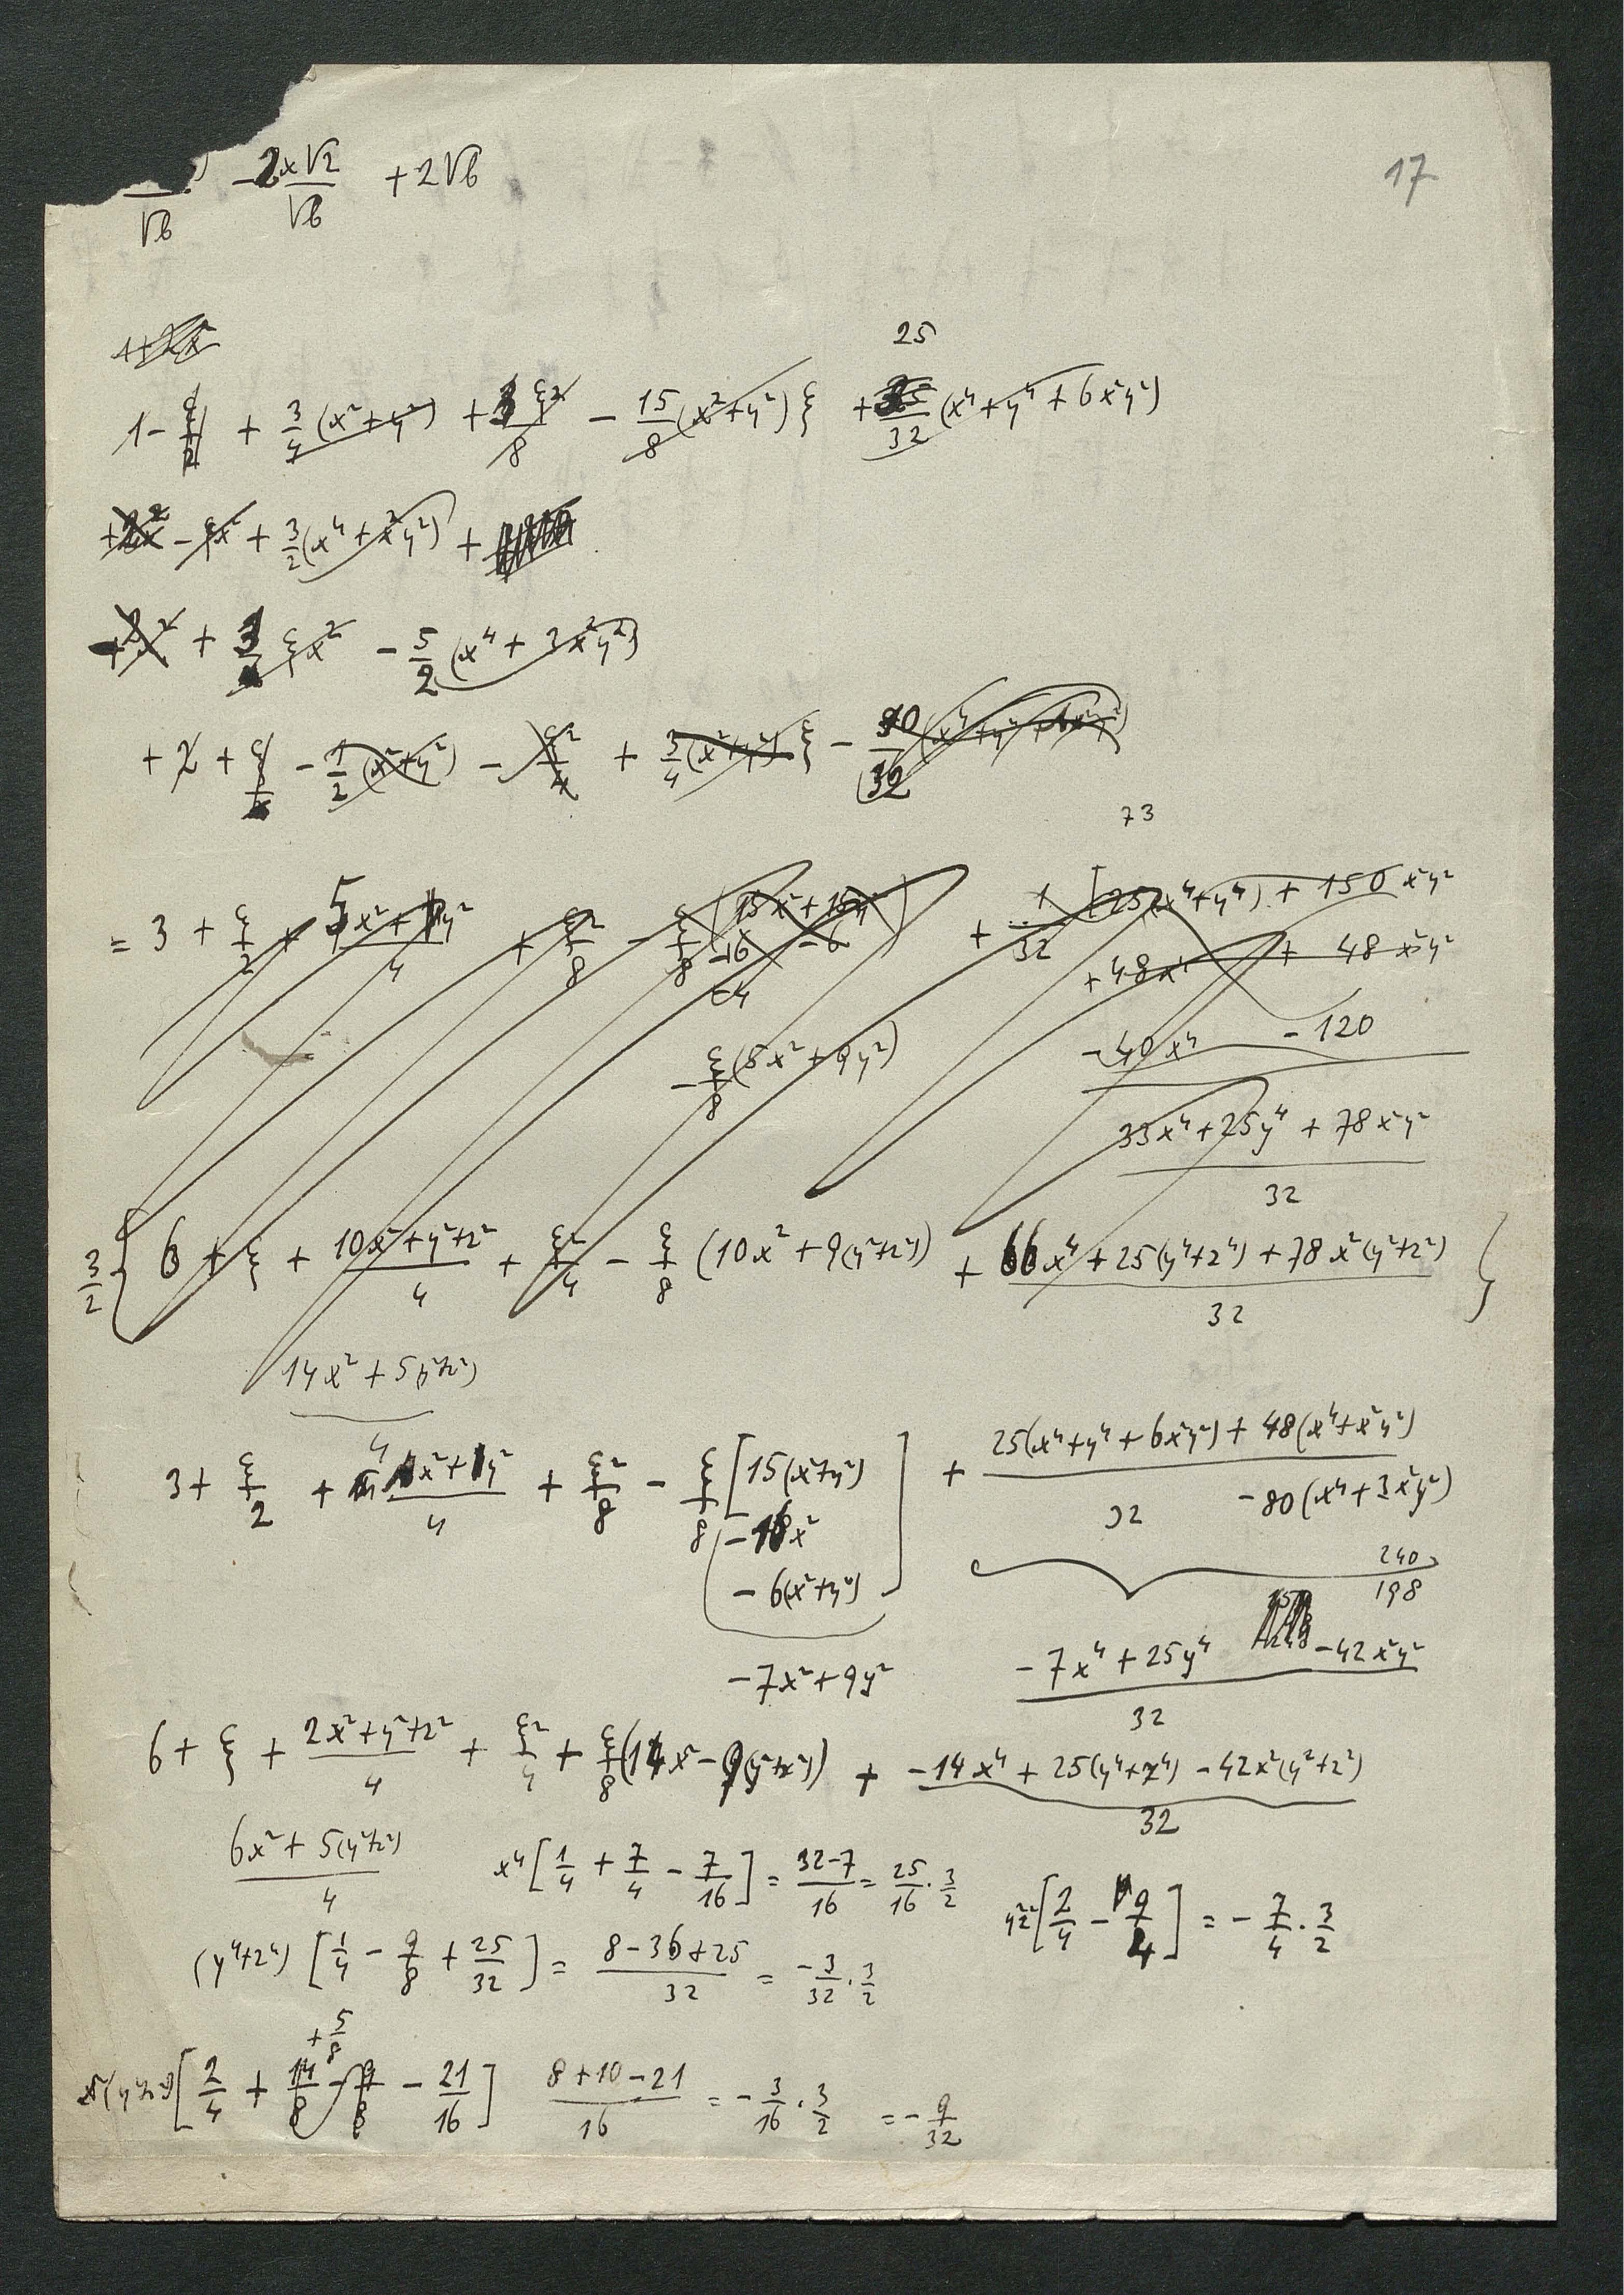 17
/√6 - 2x√2/√6 + 2√6
1+2x²
25
1 - ξ/2 + 3/4 (x²+y²) + 3ξ²/8 - 15/8 (x²+y²) ξ + /32 (x⁴+y⁴+6x²y²)
+2x² - ξx² + 3/2 (x⁴+x²y²) +
+ ξx² - 5/2 (x⁴+3x²y²)
+ 2 + ξ - 1/2 (x²+y²) - ξ²/4 + 3/4 (x²+y²) ξ - /32 (x⁴+y⁴+6x²y²)
73
= 3 + ξ/2 + 5x²+y²/4 + ξ²/8 - ξ/8 (15x²+15y²) + 1/32 [25(x⁴+y⁴) + 150 x²y²
-16 -6
+48x⁴ + 48 x²y²
-4
-40x⁴ - 120
- ξ/8 (8x²+9y²)
33x⁴+25y⁴+78x²y²/32
3/2 { 6 + ξ + 10x²+y²+z²/4 + ξ²/4 - ξ/8 (10x²+9(y²+z²)) + 66x⁴+25(y⁴+z⁴)+78x²(y²+z²)/32 }
14x²+5(y²+z²)/4
3 + ξ/2 + x²+y²/4 + ξ²/8 - ξ/8 [15(x²+y²) - 16x² - 6(x²+y²)] + 25(x⁴+y⁴+6x²y²)+48(x⁴+x²y²) - 80(x⁴+3x²y²)/32
240
198
-7x²+9y²
-7x⁴+25y⁴ -42x²y²/32
6 + ξ + 2x²+y²+z²/4 + ξ²/4 + ξ/8 (14x²-9(y²+z²)) + -14x⁴+25(y⁴+z⁴)-42x²(y²+z²)/32
6x²+5(y²+z²)/4
x⁴ [1/4 + 7/4 - 7/16] = 32-7/16 = 25/16 · 3/2
y²z² [2/4 - 9/4] = - 7/4 · 3/2
(y⁴+z⁴) [1/4 - 9/8 + 25/32] = 8-36+25/32 = -3/32 · 3/2
+ 5/8
x²(y²+z²) [2/4 + 14/8 - 9/8 - 21/16] 8+10-21/16 = - 3/16 · 3/2 = - 9/32